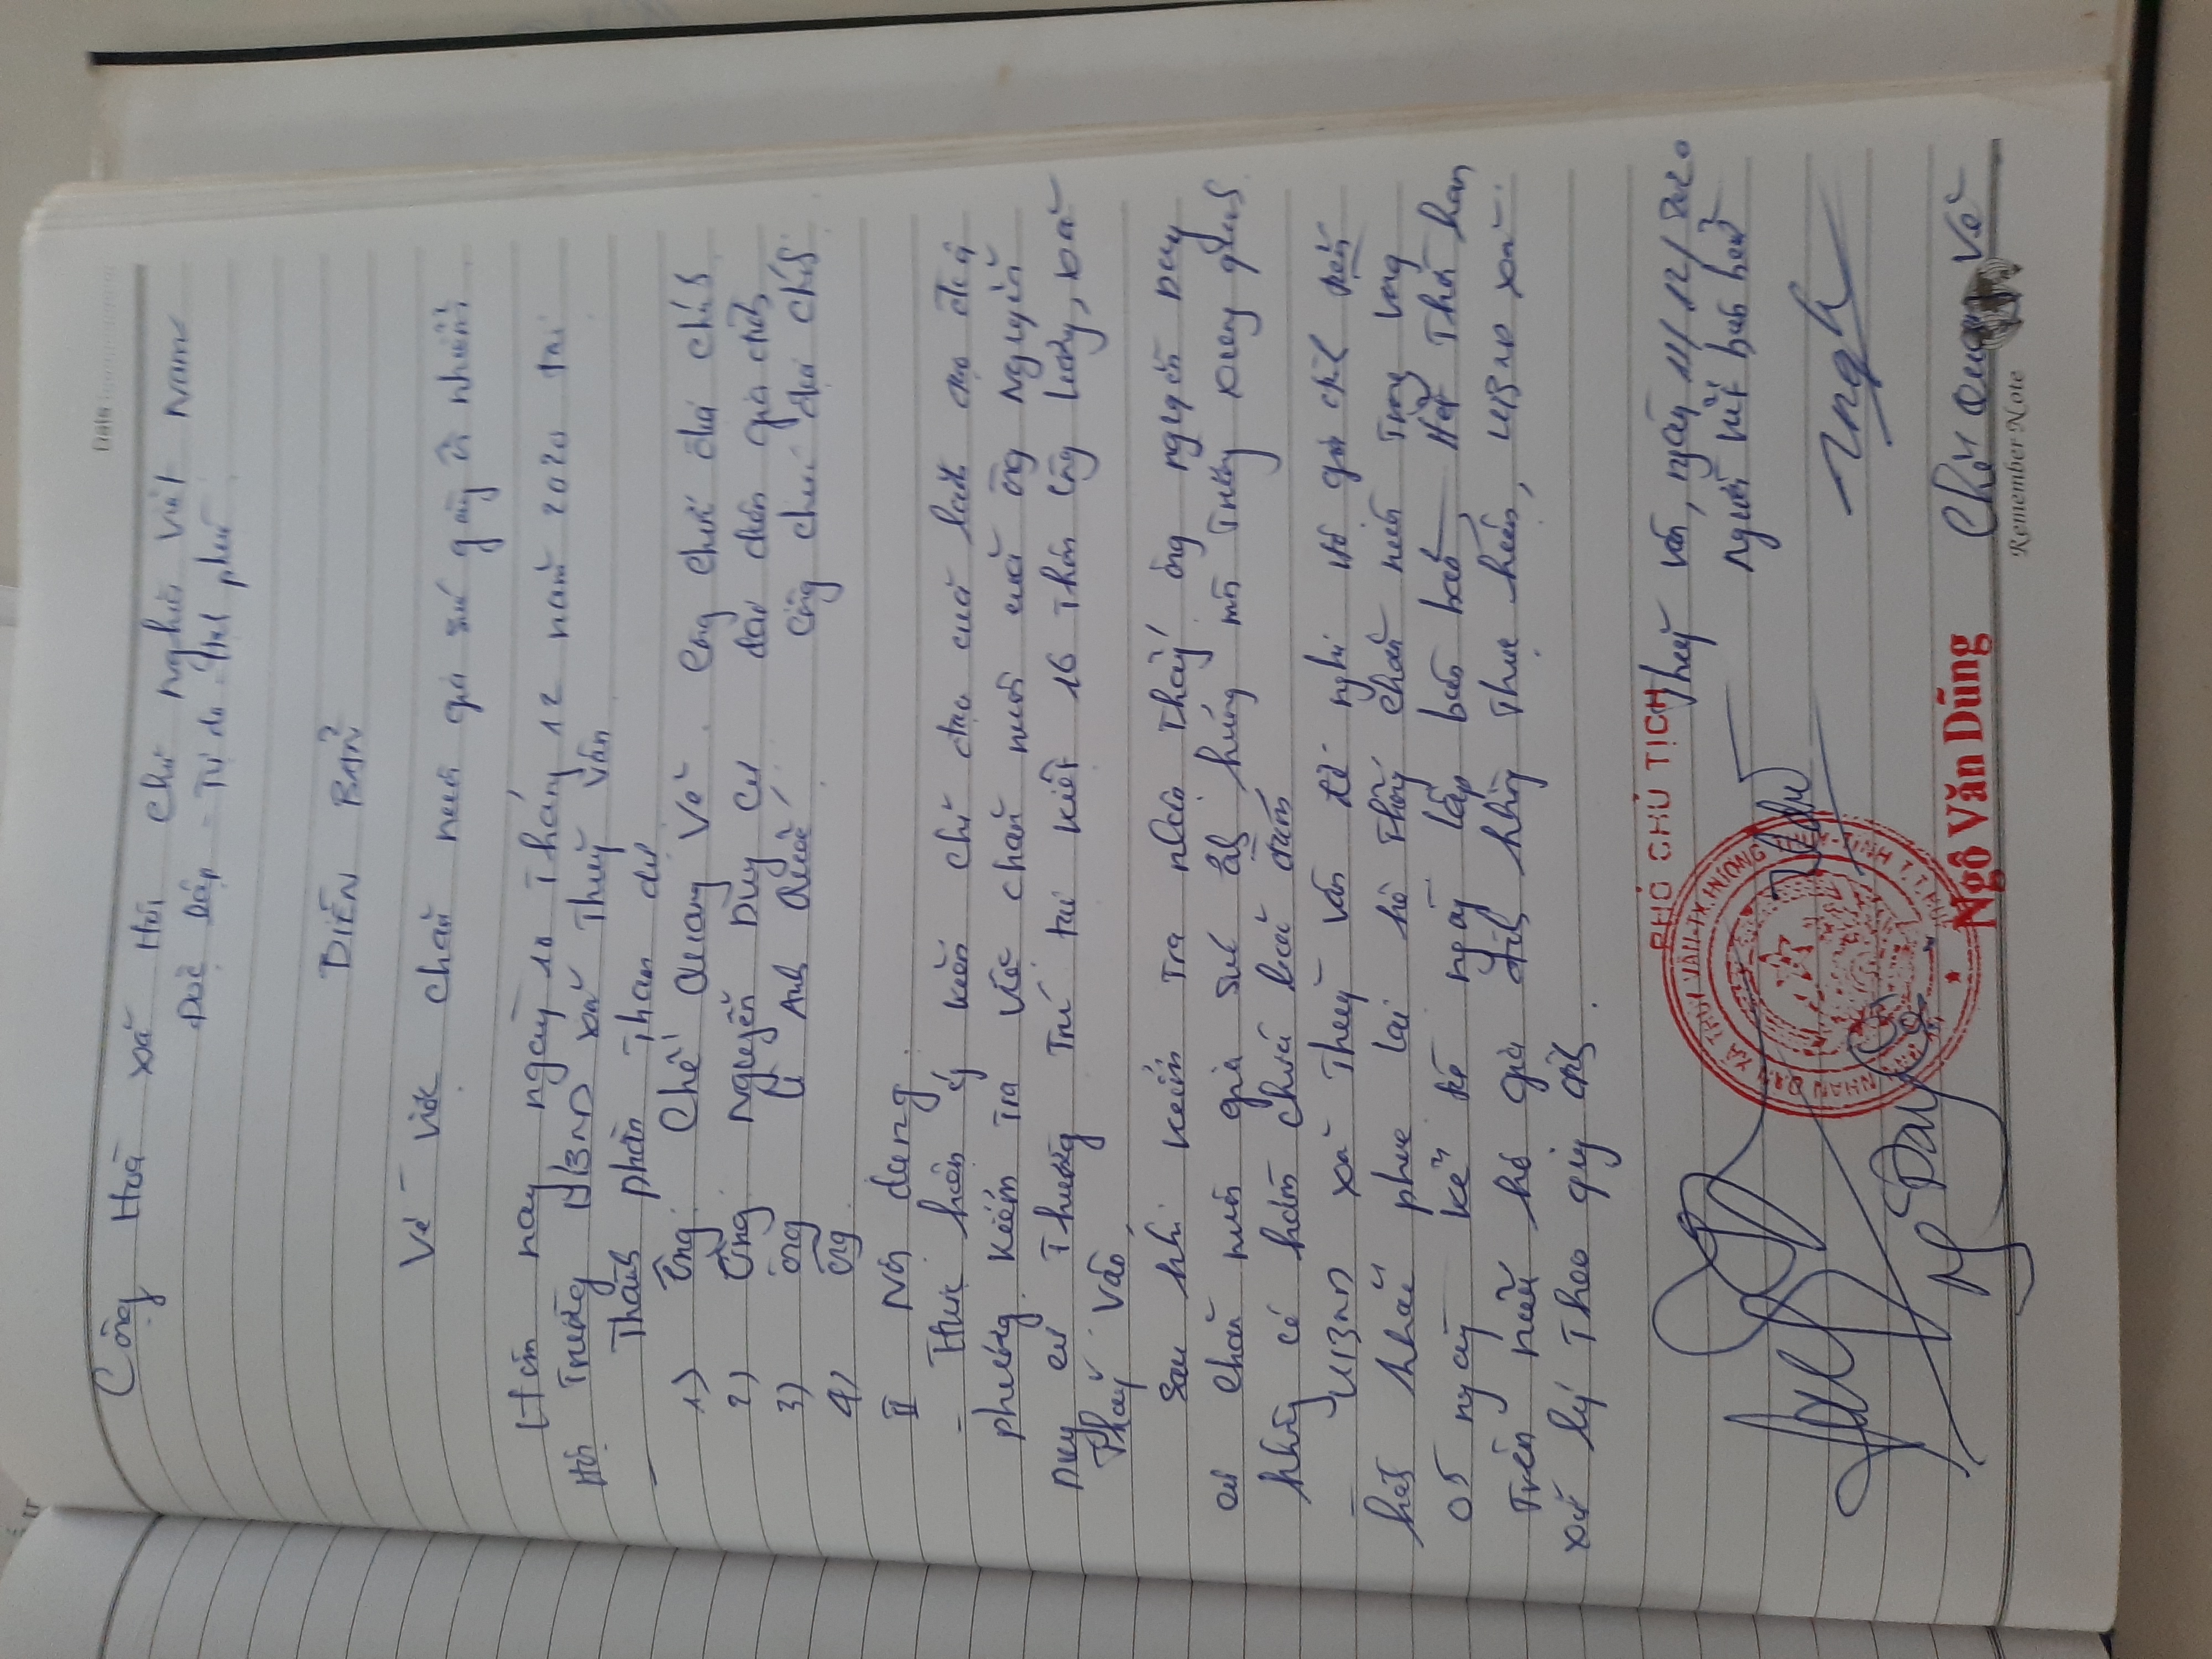 Date
Cộng Hoà xã Hội Chủ Nghĩa Việt Nam
Độc Lập - Tự do - Hạnh phúc
BIÊN BẢN
Về việc chăn nuôi gia súc gây ô nhiễm
Hôm nay ngày 10 tháng 12 năm 2020 tại
Hội Trường UBND xã Thuỷ Vân
Thành phần Tham dự
1) Ông: Chế Quang Vê. Công chức địa chính
2) Ông Nguyễn Duy Cư đại diện gia đình
3) Ông Lê Anh Quốc Công chức địa chính
4) Ông
II Nội dung
- Thực hiện ý kiến chỉ đạo của lãnh đạo địa
phương. Kiểm tra việc chăn nuôi của ông Nguyễn
Duy cư Thường Trú tại kiệt 16 Thôn Công Lương, xã
Thuỷ Vân
Sau khi kiểm tra nhận thấy ông nguyễn Duy
cư chăn nuôi gia súc ảnh hưởng môi Trường xung quanh
không có hầm chứa
- UBND xã Thuỷ Vân đề nghị hộ gia đình
khắc phục lại hệ Thống chăn nuôi Trong vòng
05 ngày kể từ ngày lập biên bản Hết Thời hạn
Trên nếu hộ gia đình không Thực hiện, UBND xã
xử lý Theo quy định.
Thuỷ Vân, ngày 11/12/2020
PHÓ CHỦ TỊCH
người viết biên bản
Ngô Văn Dũng
Chế Quang Vê
Remember Note